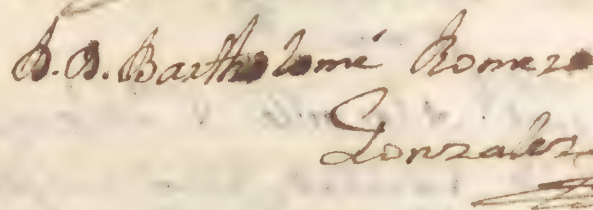 D. D. Bartholomé Romero
Gonzalez